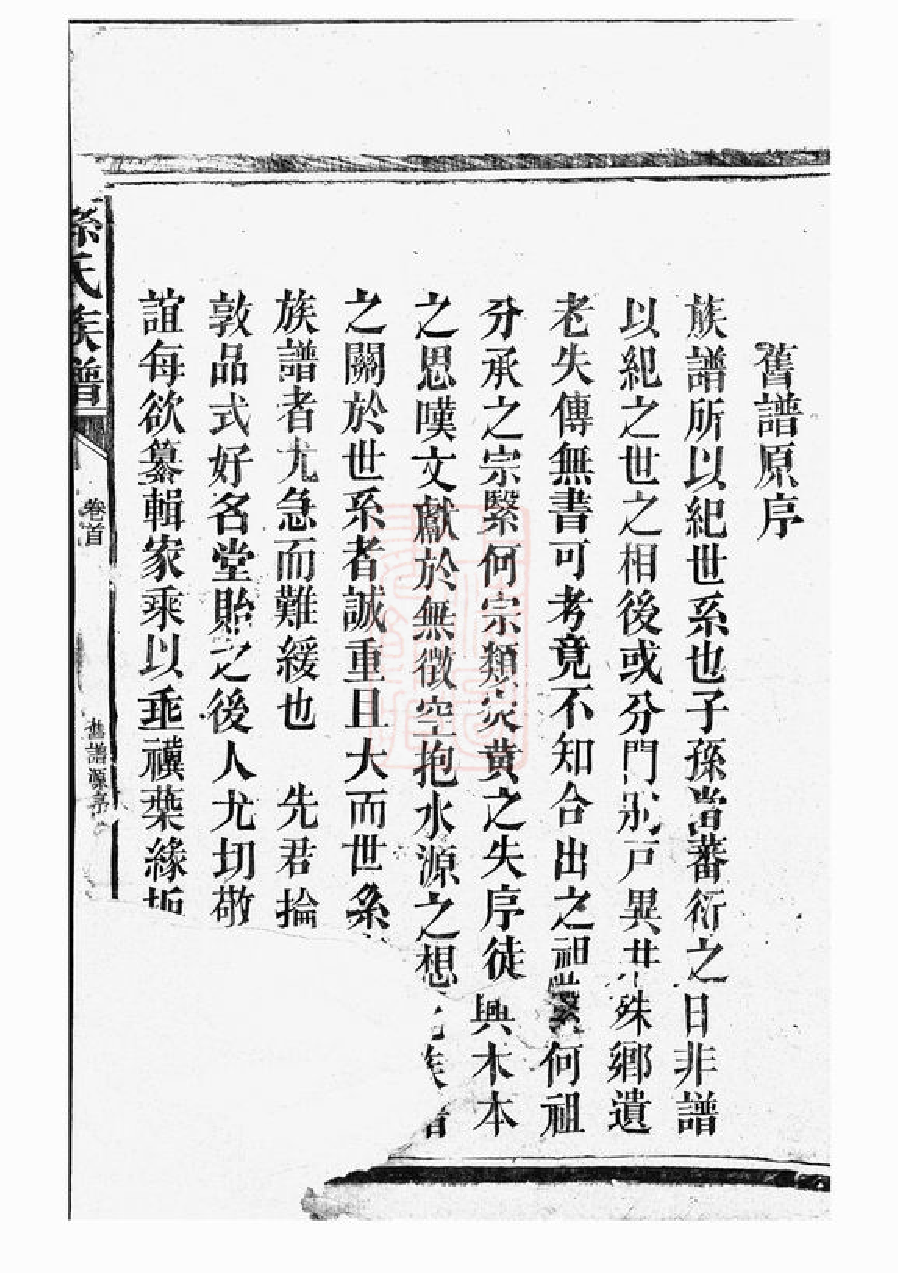 舊譜原序
族譜所以紀世系也子孫當蕃衍之日非譜
以紀之世之相後或分門別戶異井殊鄉遺
老失傳無書可考竟不知合出之祖繫何祖
分承之宗繫何宗類炎黄之失序徒興木本
之思嘆文獻於無徵空抱水源之想 族譜
之關於世系者誠重且大而世系
族譜者尤急而難緩也 先君掄
敦品式好名堂貽之後人尤切敬
誼每欲纂輯家乘以垂禩葉緣
孫氏族譜
卷首
舊譜源序